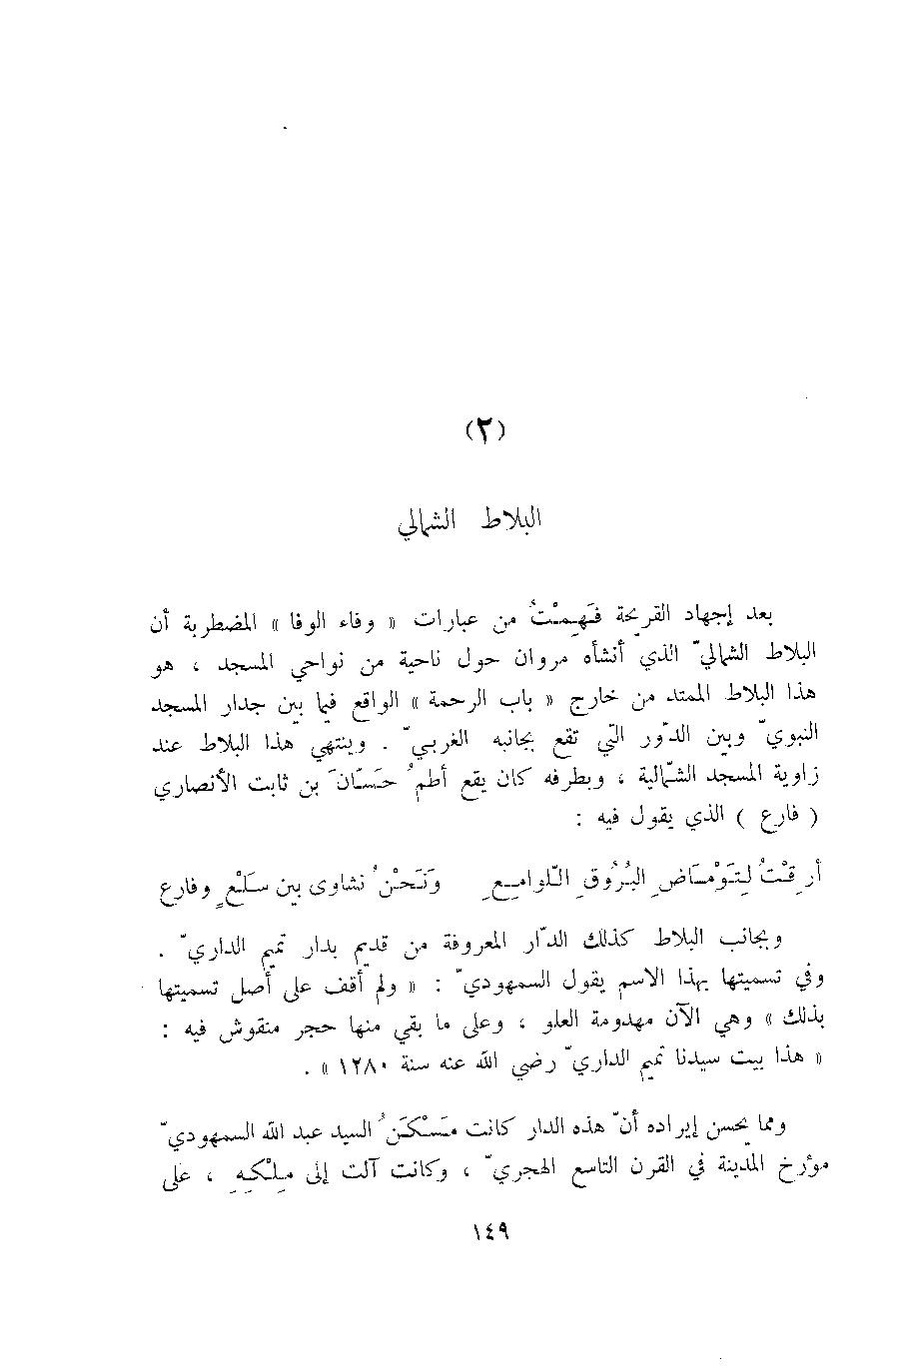 (٢)
البلاط الشمالي
بعد إجهاد القريحة فَهِمْتُ من عبارات « وفاء الوفا » المضطربة أن
البلاط الشماليّ الذي أنشأه مروان حول ناحية من نواحي المسجد ، هو
هذا البلاط الممتد من خارج « باب الرحمة » الواقع فيما بين جدار المسجد
النبويّ وبين الدّور التي تقع بجانبه الغربيّ . وينتهي هذا البلاط عند
زاوية المسجد الشّمالية ، وبطرفه كان يقع أطمُ حَسّانَ بن ثابت الأنصاري
( فارع ) الذي يقول فيه :
أرِقْتُ لِتَوْمَاضِ البُرُوقِ اللّوامِعِ وَنَحْنُ نشاوى بين سَلْعٍ وفارع
وبجانب البلاط كذلك الدّار المعروفة من قديم بدار تميم الداريّ .
وفي تسميتها بهذا الاسم يقول السمهوديّ : « ولم أقف على أصل تسميتها
بذلك » وهي الآن مهدومة العلو ، وعلى ما بقي منها حجر منقوش فيه :
« هذا بيت سيدنا تميم الداريّ رضي الله عنه سنة ١٢٨٠ » .
ومما يحسن إيراده أنّ هذه الدار كانت مَسْكَنُ السيد عبد الله السمهوديّ
مؤرخ المدينة في القرن التاسع الهجريّ ، وكانت آلت إلى مِلْكِهِ ، على
١٤٩